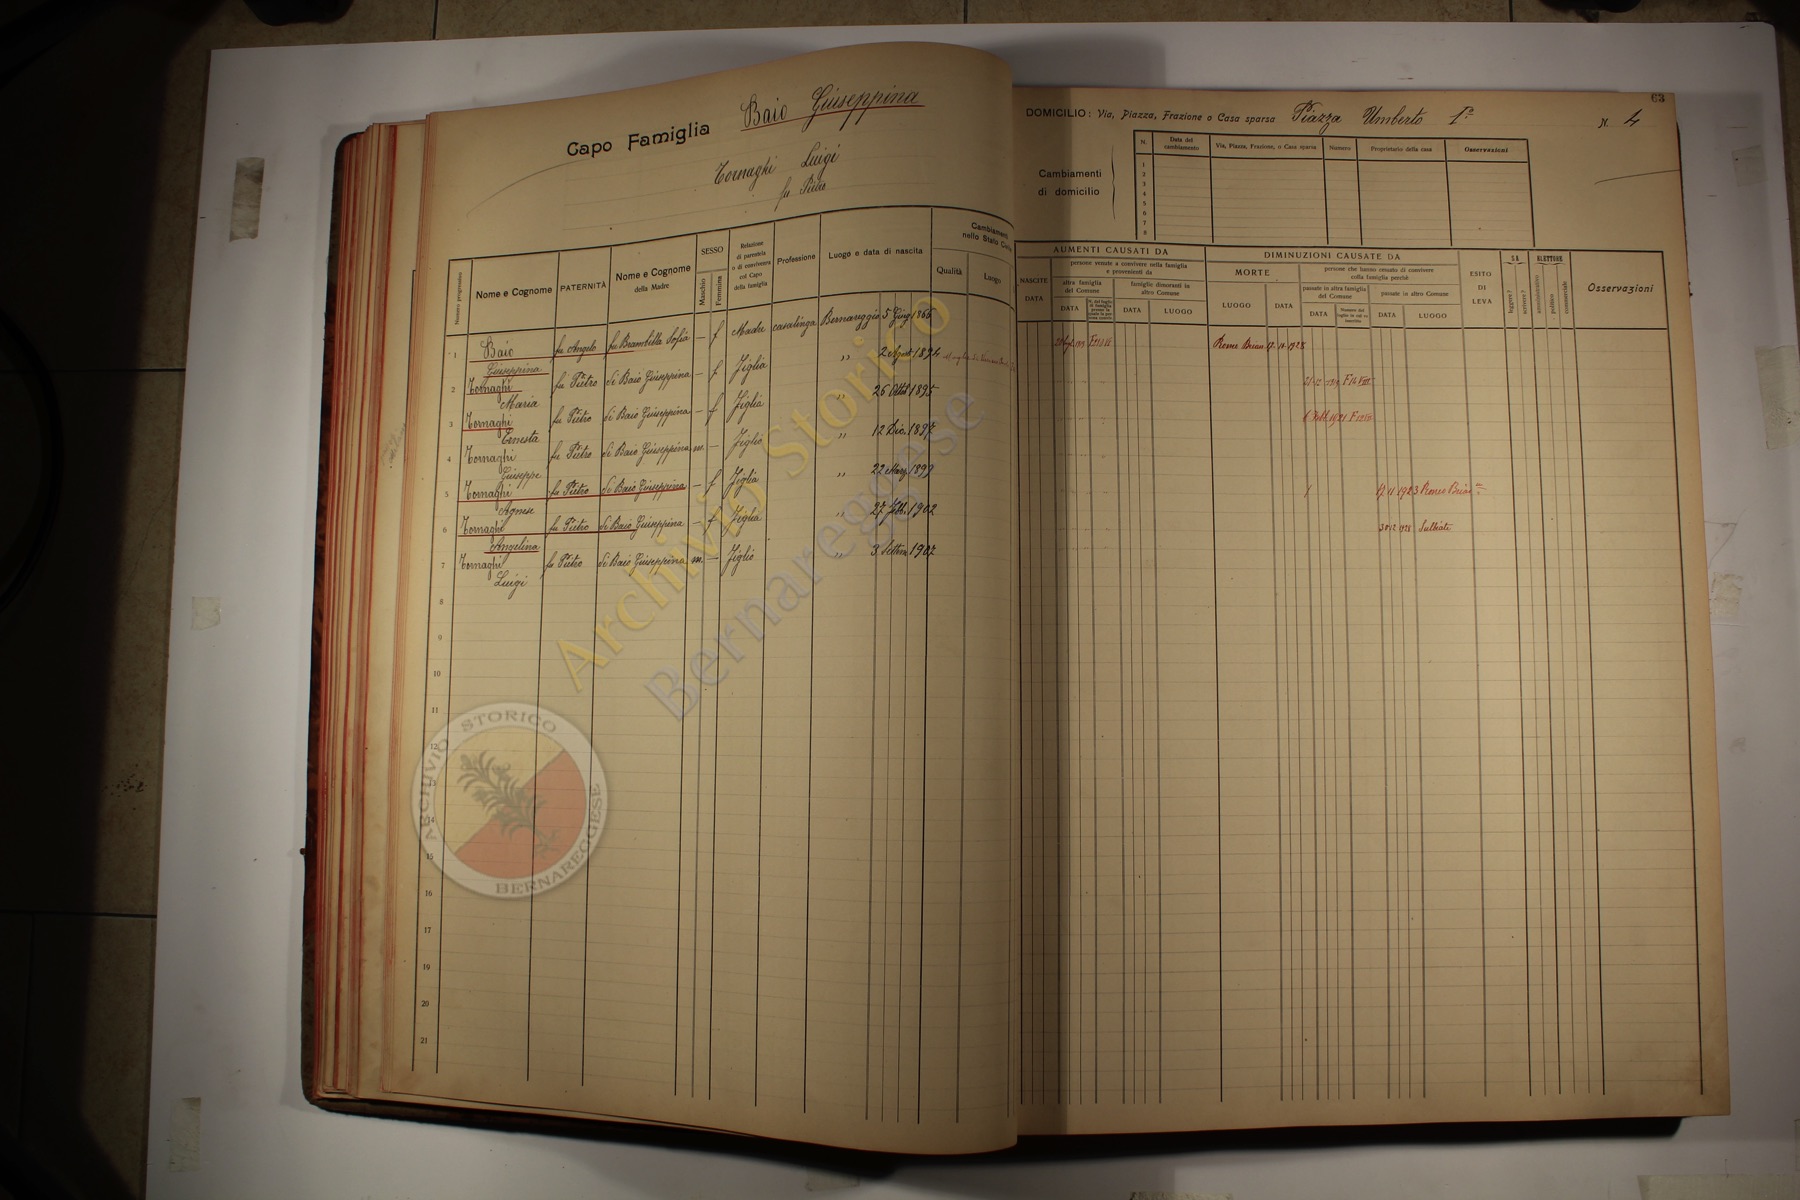 Capo Famiglia Baio Giuseppina
Tornaghi Luigi
fu Pietro
Numero progressivo
Nome e Cognome
PATERNITÀ
Nome e Cognome
della Madre
SESSO
Maschio
Femmina
Relazione
di parentela
o di convivenza
col Capo
della famiglia
Professione
Luogo e data di nascita
Cambiamenti
nello Stato
Qualità
Luogo
1 Baio Giuseppina fu Angelo fu Brambilla Sofia — f Madre casalinga Bernareggio 5 Giug 1866
2 Tornaghi Maria fu Pietro di Baio Giuseppina — f Figlia ,, 2 Agost 1894
3 Tornaghi Ernesta fu Pietro di Baio Giuseppina — f Figlia ,, 26 Ott 1895
4 Tornaghi Giuseppe fu Pietro di Baio Giuseppina m. — Figlio ,, 12 Dic. 1897
5 Tornaghi Agnese fu Pietro di Baio Giuseppina — f Figlia ,, 22 Marz 1899
6 Tornaghi Angelina fu Pietro di Baio Giuseppina — f Figlia ,, 27 Febb. 1902
7 Tornaghi Luigi fu Pietro di Baio Giuseppina m. — Figlio ,, 3 Settem 1907
8
9
10
11
12
13
14
15
16
17
18
19
20
21
63
DOMICILIO: Via, Piazza, Frazione o Casa sparsa Piazza Umberto I° N. 4
Cambiamenti
di domicilio
N.
Data del
cambiamento
Via, Piazza, Frazione, o Casa sparsa
Numero
Proprietario della casa
Osservazioni
1
2
3
4
5
6
7
8
AUMENTI CAUSATI DA
NASCITE
DATA
persone venute a convivere nella famiglia
e provenienti da
altra famiglia
del Comune
DATA
famiglie dimoranti in
altro Comune
DATA
LUOGO
DIMINUZIONI CAUSATE DA
MORTE
LUOGO
DATA
persone che hanno cessato di convivere
colla famiglia perchè
passate in altra famiglia
del Comune
DATA
passate in altro Comune
DATA
LUOGO
ESITO
DI
LEVA
SA
leggere?
scrivere?
ELETTORE
amministrativo
politico
commerciale
Osservazioni
17-11-1928
1923
Sulbiate
Archivio Storico
Bernareggese
ARCHIVIO STORICO
BERNAREGGESE